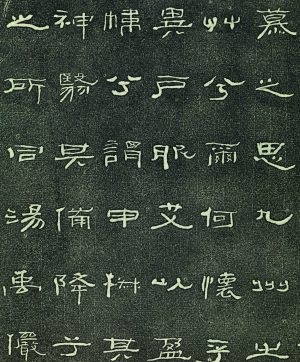 慕之思九州之
艸兮爾何懷乎
異戶服艾以盈
幃兮謂申椒其
神翳其備降兮
之所同湯禹儼